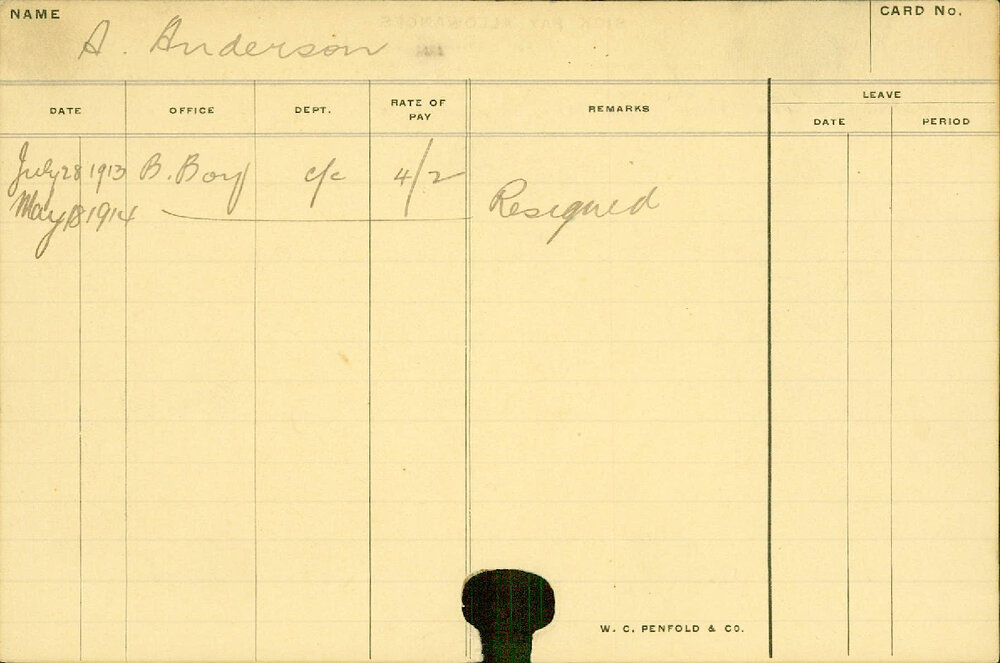 NAME
A. Anderson
CARD No.
DATE OFFICE DEPT. RATE OF PAY REMARKS LEAVE
DATE PERIOD
July 28 1913 B. Boy c/c 4/2
May 18 1914 Resigned
W. C. PENFOLD & CO.